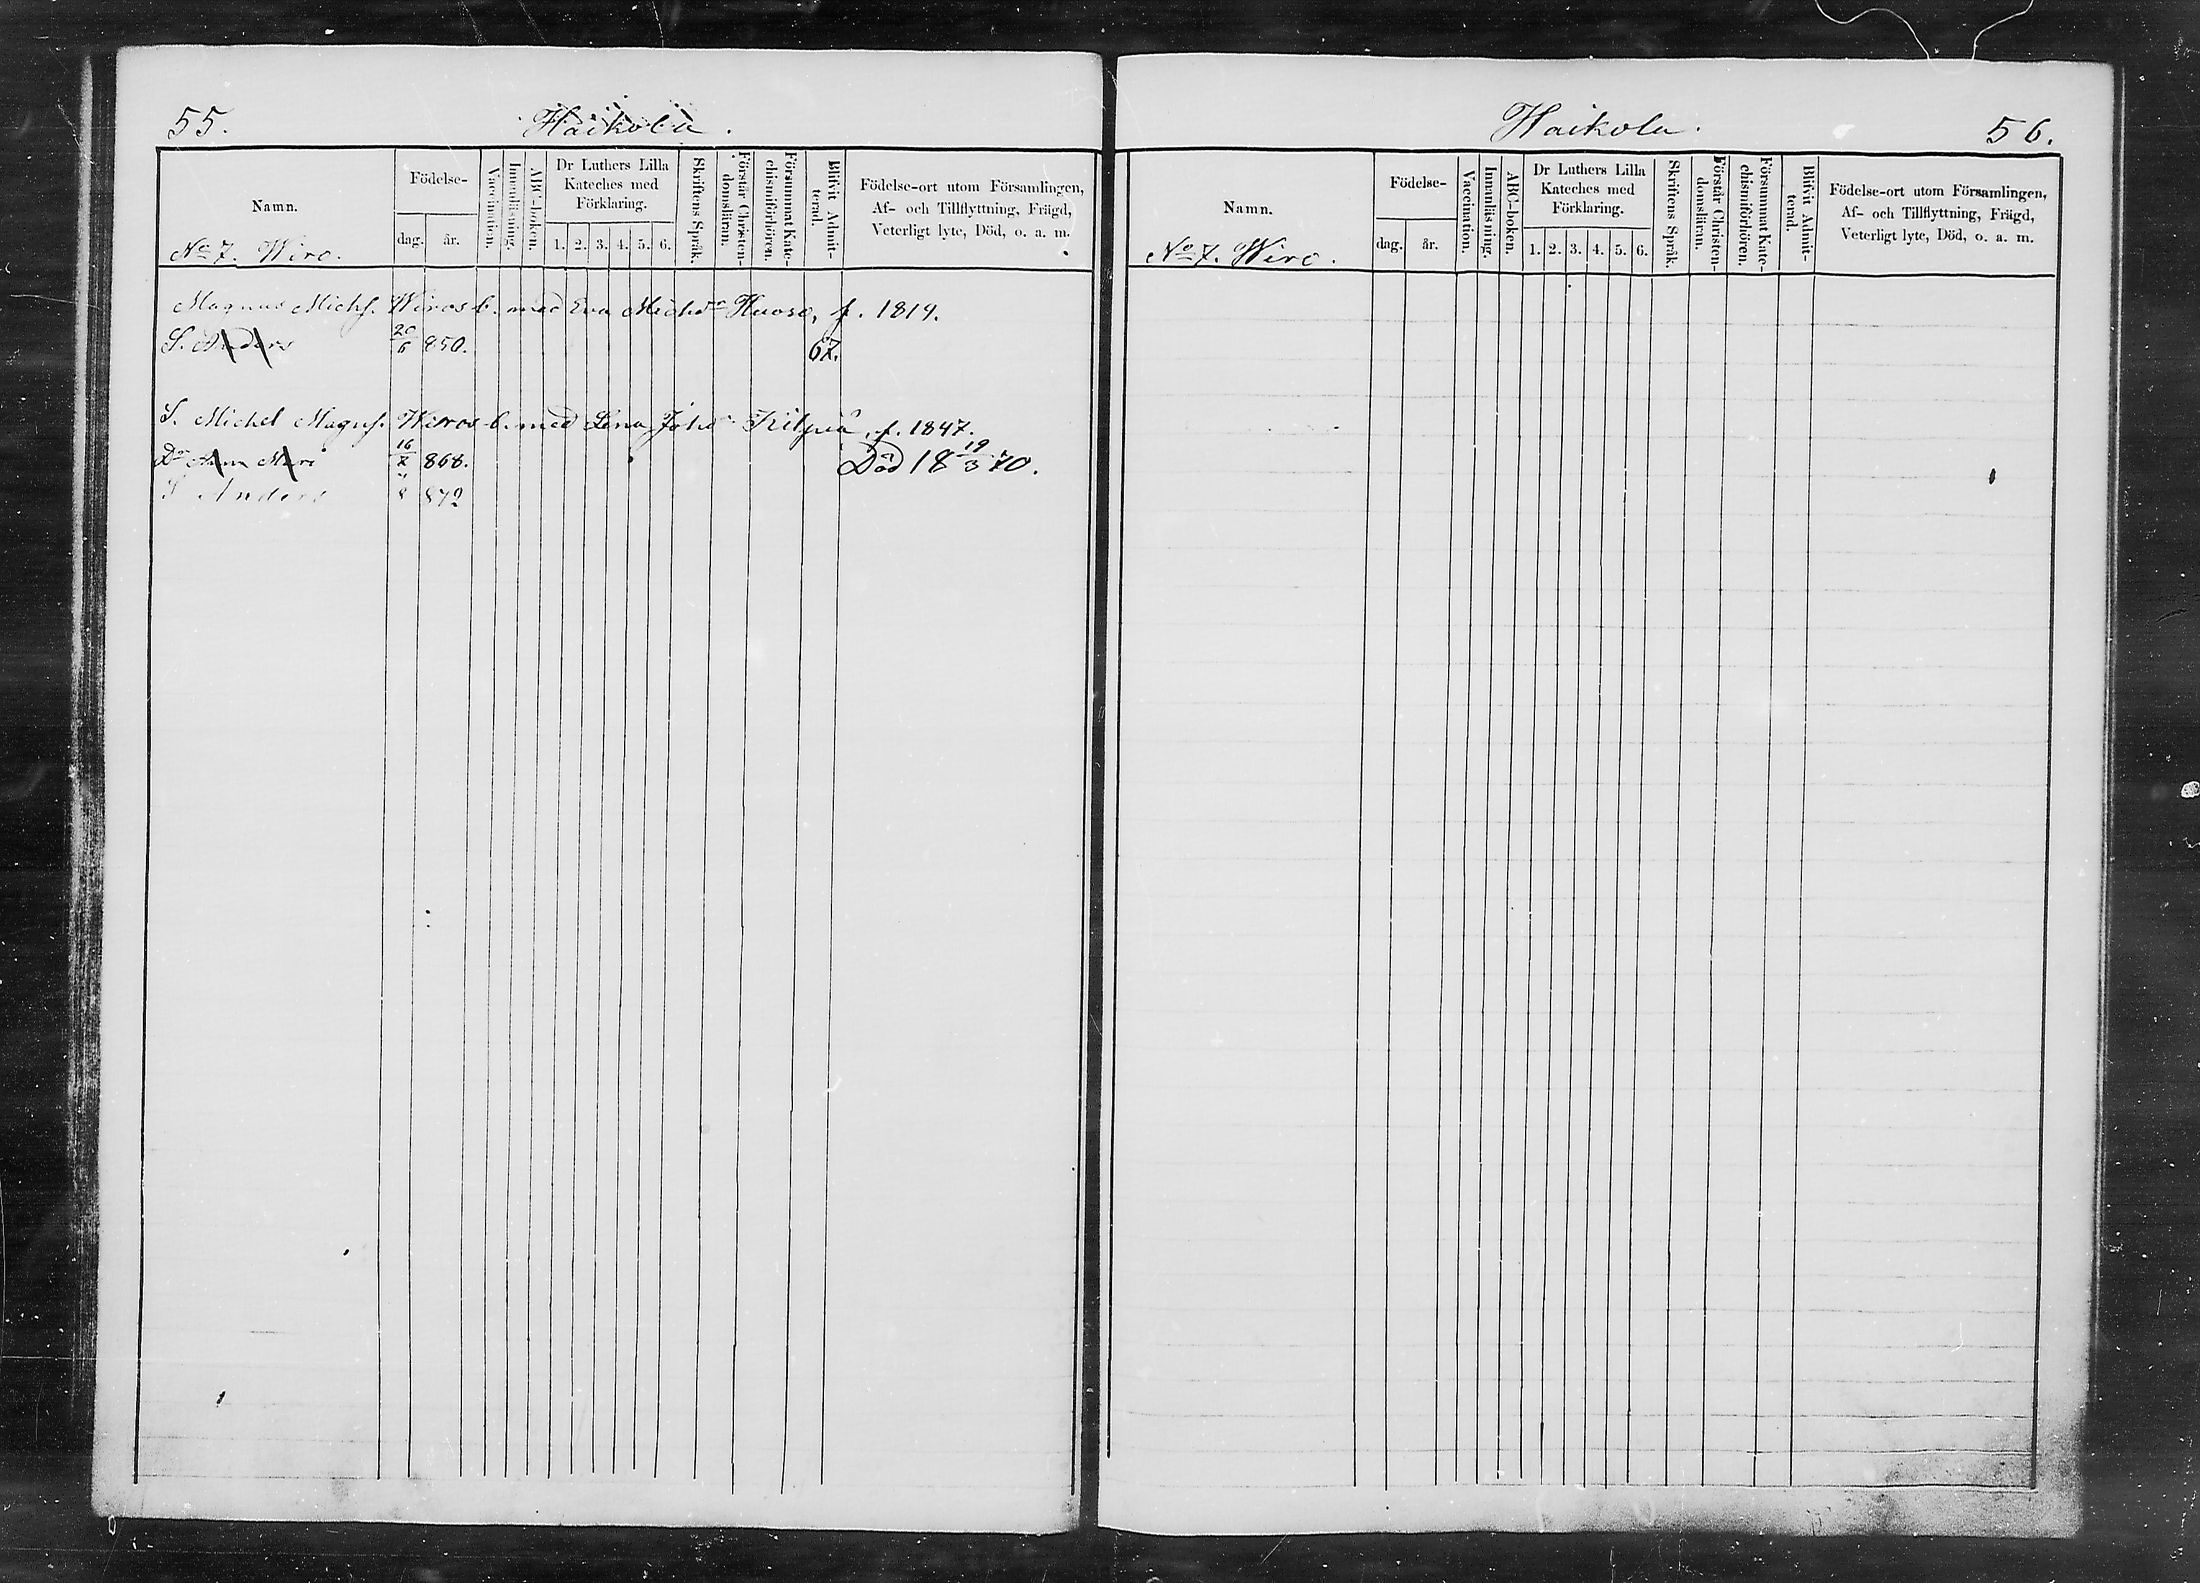 55. Haikola.
Namn.
Födelse-
dag. år.
Vaccination.
Innanläsning.
ABC-boken.
Dr Luthers Lilla
Kateches med
Förklaring.
1. 2. 3. 4. 5. 6.
Skriftens Språk.
Förstår Christen-
domsläran.
Försummat Kate-
chismiförhören.
Blifvit Admit-
terad.
Födelse-ort utom Församlingen,
Af- och Tillflyttning, Frägd,
Veterligt lyte, Död, o. a. m.
No 7. Wiro.
Magnus Michs. Wiros b. med Eva Michsdr Huoso, f. 1819.
S. Anders 20/6 850. 67.
S. Michel Magns. Wiros b. med Lena Johsdr f. 1847.
Dr Ann Mari 16/7 868. Död 18 19/3 70.
S. Anders 8 872
Haikola. 56.
Namn.
Födelse-
dag. år.
Vaccination.
Innanläsning.
ABC-boken.
Dr Luthers Lilla
Kateches med
Förklaring.
1. 2. 3. 4. 5. 6.
Skriftens Språk.
Förstår Christen-
domsläran.
Försummat Kate-
chismiförhören.
Blifvit Admit-
terad.
Födelse-ort utom Församlingen,
Af- och Tillflyttning, Frägd,
Veterligt lyte, Död, o. a. m.
No 7. Wiro.